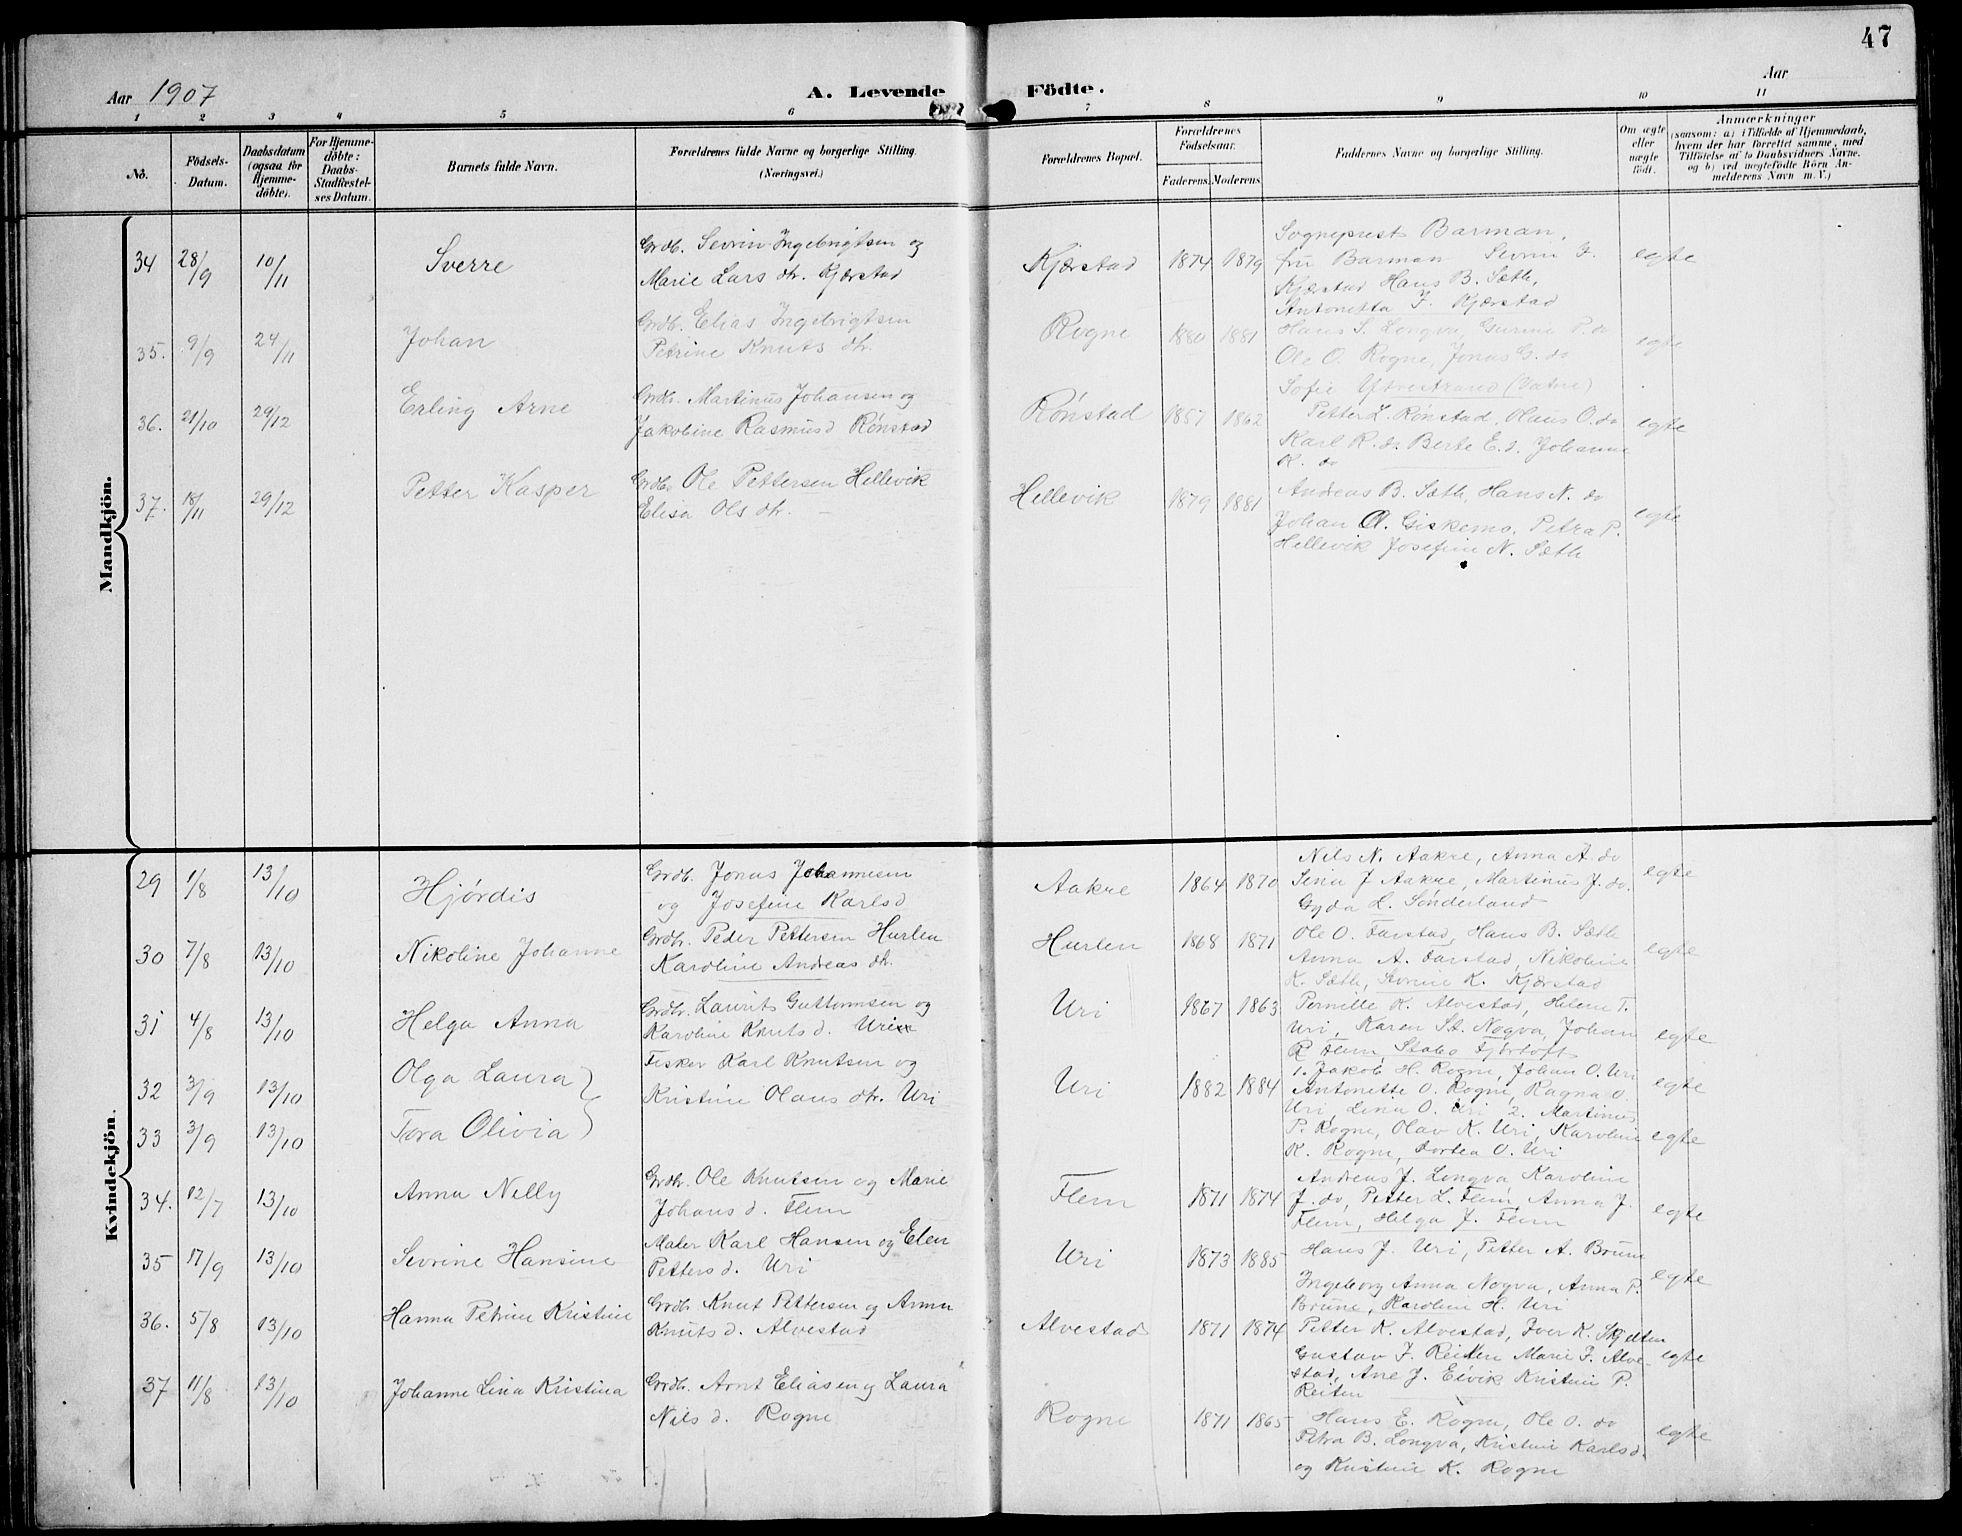 47
Aar 1907
A. Levende Födte.
Aar
1 2 3 4 5 6 7 8 9 10 11
No.
Födsels-Datum.
Daabsdatum (ogsaa for Hjemme-döbte).
For Hjemme-döbte: Daabs-Stadfæstel-ses Datum.
Barnets fulde Navn.
Forældrenes fulde Navne og borgerlige Stilling. (Næringsvei.)
Forældrenes Bopæl.
Forældrenes Födselsaar.
Faderens. Moderens.
Faddernes Navne og borgerlige Stilling.
Om ægte eller uægte födt.
Anmærkninger
(saasom: a) i Tilfælde af Hjemmedaab, hvem der har forrettet samme, med Tilföielse af to Daabsvidners Navne. og b) ved uægtefödte Börn, An-melderens Navn m. V.)
Mandkjön.
34 28/9 10/11 Sverre
Grdb. Sevrin Ingebrigtsen og
Marie Lars dtr. Kjærstad
Kjærstad 1874 1879
Sogneprest Barman,
fru Barman Sevrin F.
Kjærstad Hans B. Sæth,
Antonetta F. Kjærstad
egte
35. 9/9 24/11 Johan
Grdb. Elias Ingebrigtsen
Petrine Knuts dtr.
Rogne 1880 1881
Hans S. Longva, Gurine P. do
Ole O. Rogne, Jonas G. do
Sofie Ytrestrand (Vatne)
egte
36. 21/10 29/12 Erling Arne
Grdbr. Martinus Johansen og
Jakobine Rasmusd Rönstad
Rönstad 1857 1862
Petter L. Rönstad, Olaus O. do
Karl R. do. Berte E. d. Johanne
K. do
egte
37. 18/11 29/12 Petter Kasper
Grdb. Ole Pettersen Hellevik
Elisa Ols dtr.
Hellevik 1879 1881
Andreas B. Sæth, Hans N. do
Johan A. Giskemo, Petra P.
Hellevik Josefine N. Sæth
egte
Kvindekjön.
29 1/8 13/10 Hjördis
Grdb. Jonas Johannesen
og Josefine Karlsd
Aakre 1864 1870
Nils N. Aakre, Anna A. do
Sina J Aakre, Martinus J. do.
Gyda L. Sönderland
egte
30 7/8 13/10 Nikoline Johanne
Grdbr. Peder Pettersen Hurlen
Karoline Andreas dtr.
Hurlen 1868 1871
Ole O. Farstad, Hans B. Sæth
Anna A. Farstad, Nikoline
K. Sæth, Sevrine K. Kjærstad
egte
31 4/8 13/10 Helga Anna
Grdbr. Laurits Guttormsen og
Karoline Knuts d. Uri
Uri 1867 1863
Pernille K. Alvestad, Helene T.
Uri, Karen St. Nogva, Johan
R Flem, Fjörtoft
egte
32 3/9 13/10 Olga Laura
Fisker Karl Knutsen og
Kristine Olaus dtr. Uri
Uri 1882 1884
1. Jakob H. Rogne, Johan O. Uri
Antonette O. Rogne, Ragna O.
Uri, Lina O. Uri 2. Martinus
egte
33 3/9 13/10 Tora Olivia
P. Rogne, Olav K. Uri, Karoline
K. Rogne, Dortea O. Uri
egte
34. 12/7 13/10 Anna Nelly
Grdbr. Ole Knutsen og Marie
Johans d. Flem
Flem 1871 1874
Andreas J. Longva Karoline
J. do, Petter L. Flem, Anna J.
Flem, Helga J. Flem
egte
35 17/9 13/10 Sevrine Hansine
Maler Karl Hansen og Elen
Petters d. Uri
Uri 1873 1885
Hans J. Uri, Petter A. Brune
Ingeborg Anna Nogva, Anna P.
Brune, Karoline H. Uri
egte
36. 5/8 13/10 Hanna Petrine Kristine
Grdb. Knut Pettersen og Anna
Knuts d. Alvestad
Alvestad 1871 1874
Petter K. Alvestad, Iver K. Skjelten
Gustav J. Reiten Marie P. Alve-
stad, Ane J. Eivik Kristine P.
Reiten
egte
37 11/8 13/10 Johanne Lina Kristina
Grdb. Arnt Eliasen og Laura
Nils d. Rogne
Rogne 1871 1865
Hans E. Rogne, Ole O. do
Petra B. Longva, Kristine Karlsd.
og Kristine K. Rogne
egte